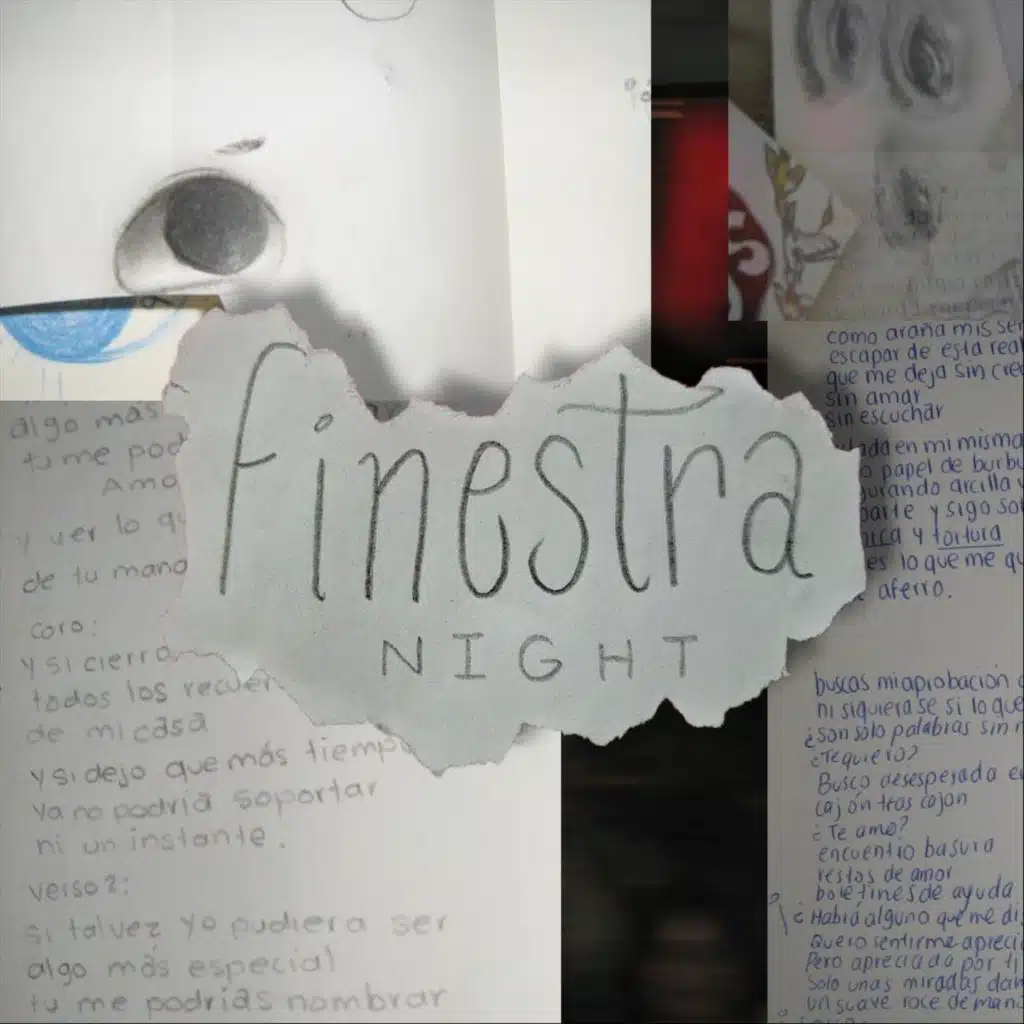 Finestra
NIGHT
algo más
tu me pod
Amo
y ver lo qu
de tu mano
coro:
y si cierro
todos los recuer
de mi casa
y si dejo que más tiempo
ya no podría soportar
ni un instante.
verso 2:
si talvez yo pudiera ser
algo más especial
tu me podrías nombrar
como araña mis ser
escapar de esta real
que me deja sin cree
sin amar
sin escuchar
lada en mi misma
papel de burbu
gurando arcilla y
parte y sigo sol
y tortura
es lo que me qu
aferro.
buscas mi aprobación
ni siquiera se si lo que
¿son solo palabras sin
¿Te quiero?
Busco desesperada e
cajón tras cajon
¿Te amo?
encuentro basura
restos de amor
boletines de ayuda
¿Habrá alguno que me di
Quero sentirme apreci
Pero apreciada por ti
Solo unas miradas dan
un suave roce de man